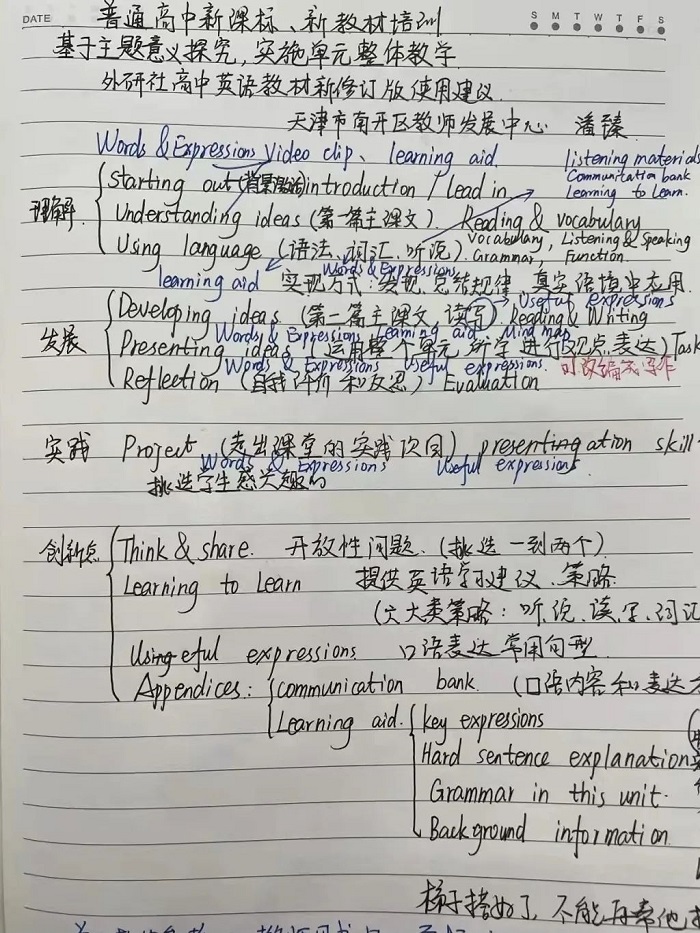 DATE
S M T W T F S
普通高中新课标、新教材培训
基于主题意义探究,实施单元整体教学
外研社高中英语教材新修订版使用建议
天津市南开区教师发展中心 潘臻
Words & Expressions Video clip、learning aid. listening materials
Communication bank
Learning to Learn.
理解 Starting out (背景激活) introduction / Lead in
Understanding ideas (第一篇主课文). Reading & vocabulary
Using language (语法、词汇、听说) Vocabulary, Listening & Speaking
Grammar, Function
learning aid 实现方式:发现、总结规律、真实语境中应用.
Words & Expressions
Useful expressions
发展 Developing ideas (第二篇主课文 读写) Reading & Writing
Words & Expressions Learning aid Mind map
Presenting ideas (运用整个单元所学进行观点表达) Task
Words & Expressions Useful expressions. 可改编成写作
Reflection (自我评价和反思) Evaluation
实践 Project (走出课堂的实践项目) presentingation skill
Words & Expressions Useful expressions
挑选学生感兴趣的
创新点 Think & share. 开放性问题、(挑选一到两个)
Learning to Learn 提供英语学习建议、策略
(六大类策略:听、说、读、写、词汇
Using eful expressions 口语表达常用句型
Appendices: communication bank. (口语内容和表达方
Learning aid. key expressions
Hard sentence explanation
Grammar in this unit.
Background information
梯子搭好了,不能再帮他